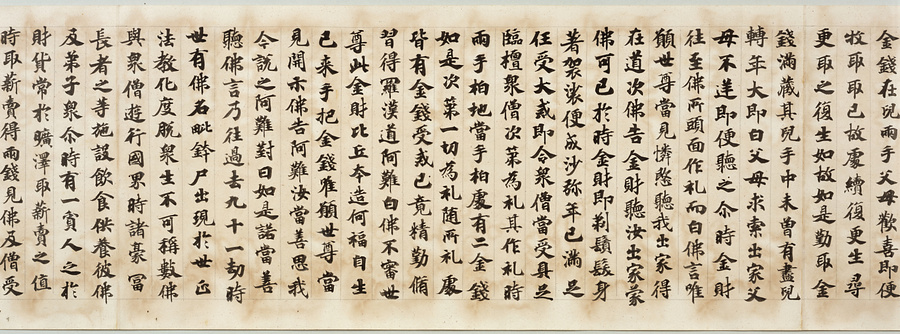 金錢在兒兩手父母歡喜即便
收取取已故處續復更生尋
更取之復生如故如是勤取金
錢滿藏其兒手中未曾有盡兒
轉年大即白父母求索出家父
母不逆即便聽之尒時金財
往至佛所頭面作礼而白佛言唯
願世尊當見憐愍聽我出家得
在道次佛告金財聽汝出家蒙
佛可已於時金財即剃鬚髮身
著袈裟便成沙弥年已滿足
任受大戒即令衆僧當受具足
臨檀衆僧次第為礼其作礼時
兩手拍地當手拍處有二金錢
如是次第一切為礼隨所礼處
皆有金錢受戒已竟精勤脩
習得羅漢道阿難白佛不審世
尊此金財比丘本造何福自生
已来手把金錢唯願世尊當
見開示佛告阿難汝當善思我
今說之阿難對曰如是諾當善
聽佛言乃往過去九十一劫時
世有佛名毗鉢尸出現於世正
法教化度脫衆生不可稱數佛
與衆僧遊行國界時諸豪冨
長者之等施設飲食供養彼佛
及弟子衆尒時有一貧人乏於
財貨常於曠澤取薪賣之值
時取薪賣得兩錢見佛及僧受